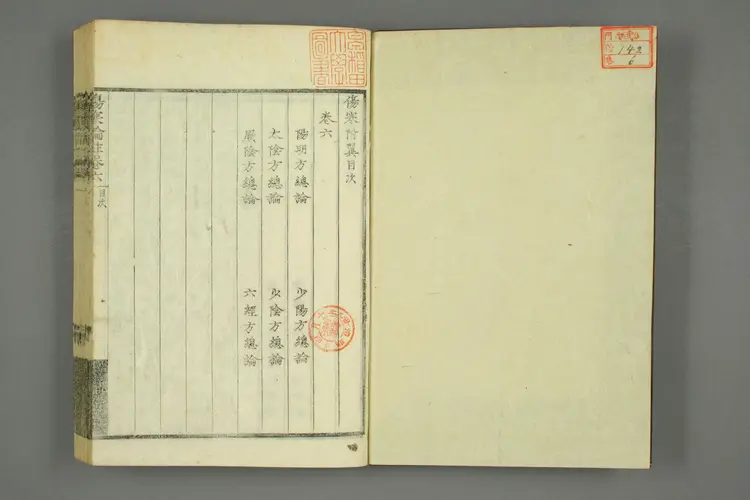 傷寒附翼目次
卷六
陽明方總論
少陽方總論
太陰方總論
少陰方總論
厥陰方總論
六經方總論
傷寒論註卷六
目次
早稻田大學圖書